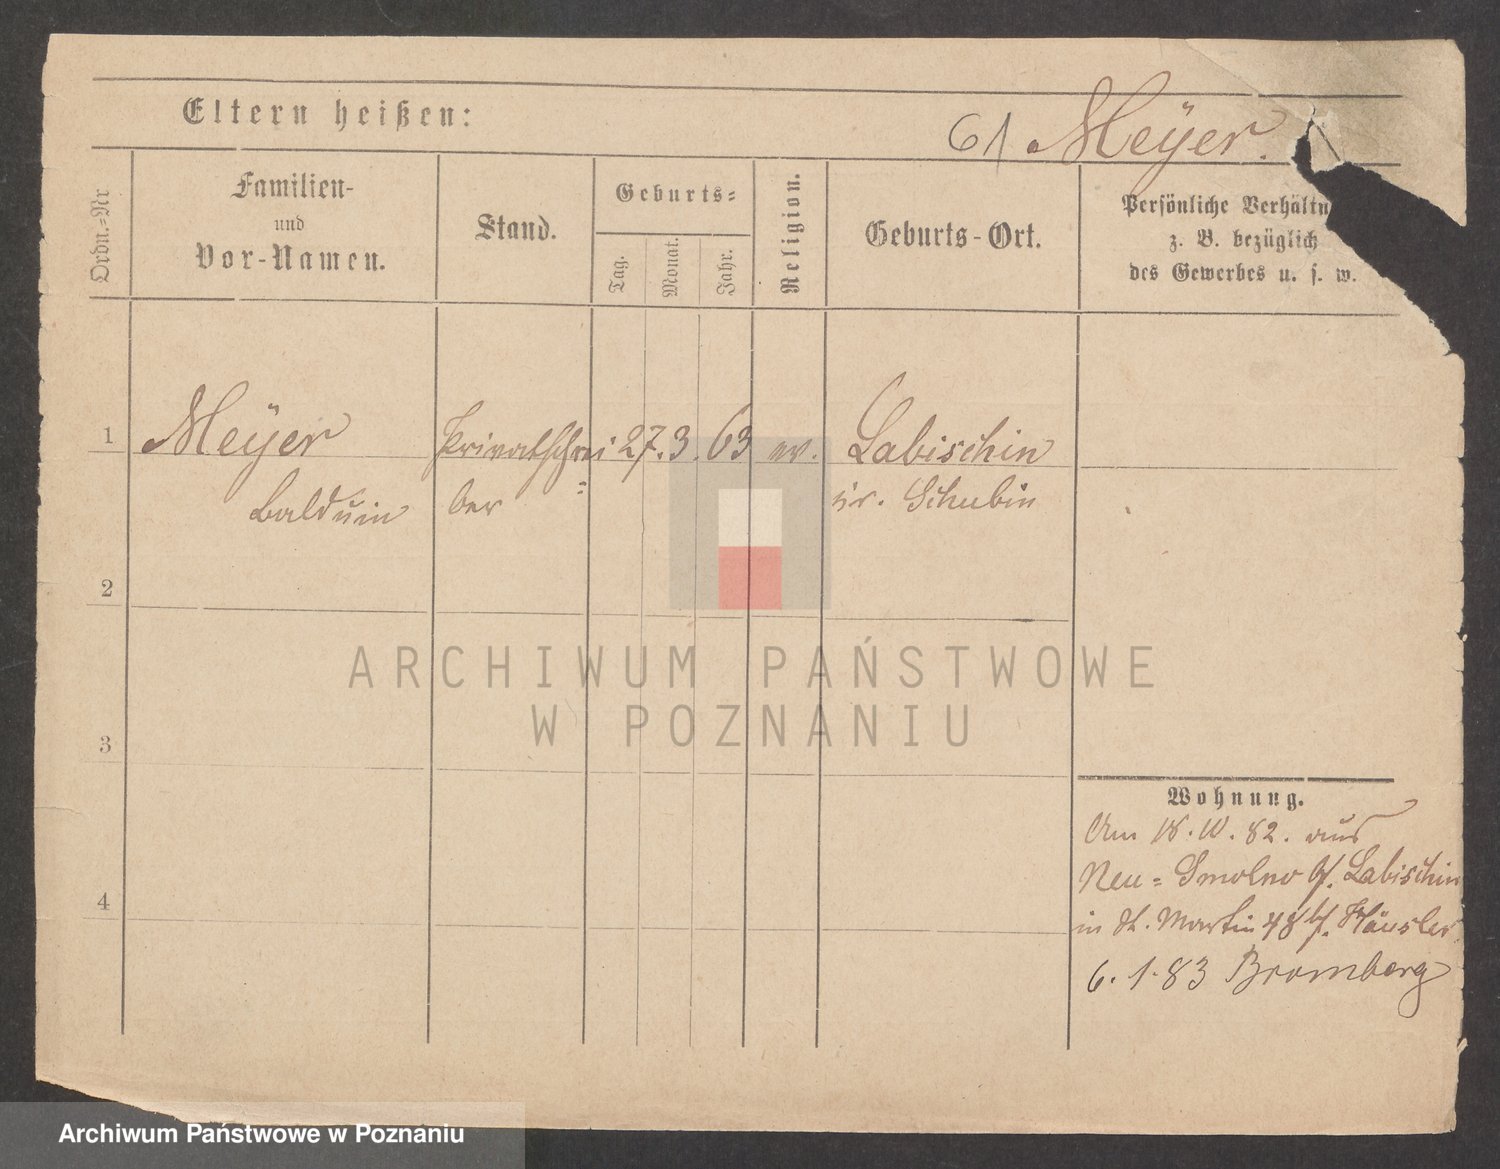 Eltern heißen:
61 Meÿer.
Ordn.=Nr
Familien-
und
Vor-Namen.
Stand.
Geburts=
Tag.
Monat.
Jahr.
Religion.
Geburts-Ort.
Persönliche Verhältn
z. B. bezüglich
des Gewerbes u. s. w.
1
Meÿer
Privatschrei 27. 3. 63 ev. Labischin
Balduin
=
ber
Kr. Schubin
2
3
4
Wohnung.
Am 18. 10. 82. aus
Neu= Smolno bf. Labischin
in St. Martin 48 bf. Häusler
6. 1. 83 Bromberg
ARCHIWUM PAŃSTWOWE
W POZNANIU
Archiwum Państwowe w Poznaniu